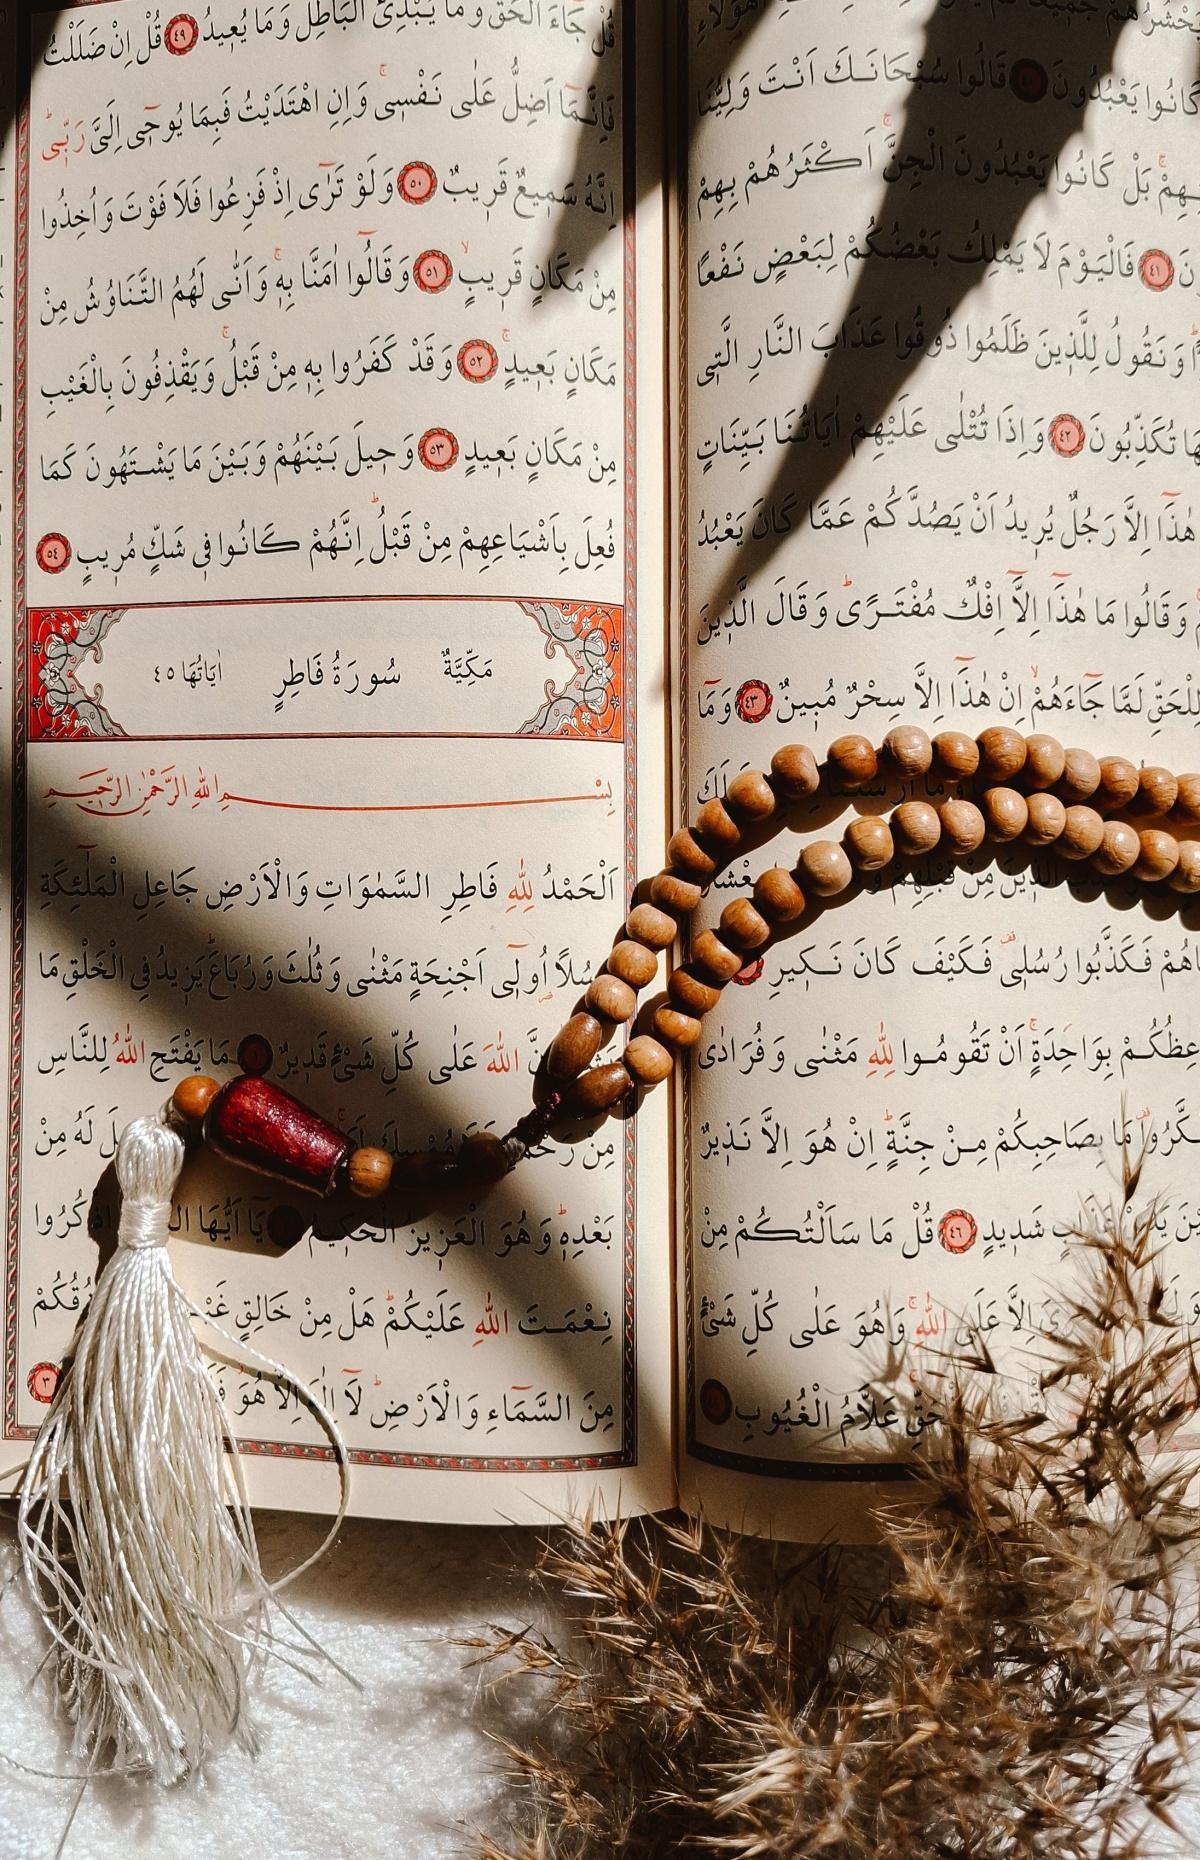 كَانُوا يَعْبُدُونَ قَالُوا سُبْحَانَكَ اَنْتَ وَلِيُّنَا
بَلْ كَانُوا يَعْبُدُونَ الْجِنَّ اَكْثَرُهُمْ بِهِمْ
٤١ فَالْيَوْمَ لَا يَمْلِكُ بَعْضُكُمْ لِبَعْضٍ نَفْعًا
وَنَقُولُ لِلَّذِينَ ظَلَمُوا ذُوقُوا عَذَابَ النَّارِ الَّتِى
تُكَذِّبُونَ ٤٢ وَاِذَا تُتْلٰى عَلَيْهِمْ اٰيَاتُنَا بَيِّنَاتٍ
هٰذَٓا اِلَّا رَجُلٌ يُرِيدُ اَنْ يَصُدَّكُمْ عَمَّا كَانَ يَعْبُدُ
وَقَالُوا مَا هٰذَٓا اِلَّٓا اِفْكٌ مُفْتَرًى وَقَالَ الَّذِينَ
لِلْحَقِّ لَمَّا جَٓاءَهُمْ اِنْ هٰذَٓا اِلَّا سِحْرٌ مُبِينٌ ٤٣ وَمَٓا
مِنْ قَبْلِهِمْ
فَكَذَّبُوا رُسُلِى فَكَيْفَ كَانَ نَكِيرِ
بِوَاحِدَةٍ اَنْ تَقُومُوا لِلّٰهِ مَثْنٰى وَفُرَادٰى
مَا بِصَاحِبِكُمْ مِنْ جِنَّةٍ اِنْ هُوَ اِلَّا نَذِيرٌ
شَدِيدٍ ٤٦ قُلْ مَا سَاَلْتُكُمْ مِنْ
اِلَّا عَلَى اللّٰهِ وَهُوَ عَلٰى كُلِّ شَىْءٍ
عَلَّامُ الْغُيُوبِ
قُلْ جَٓاءَ الْحَقُّ وَمَا يُبْدِئُ الْبَاطِلُ وَمَا يُعِيدُ ٤٩ قُلْ اِنْ ضَلَلْتُ
فَاِنَّمَٓا اَضِلُّ عَلٰى نَفْسِى وَاِنِ اهْتَدَيْتُ فَبِمَا يُوحٰٓى اِلَىَّ رَبِّى
اِنَّهُ سَمِيعٌ قَرِيبٌ ٥٠ وَلَوْ تَرٰٓى اِذْ فَزِعُوا فَلَا فَوْتَ وَاُخِذُوا
مِنْ مَكَانٍ قَرِيبٍ ٥١ وَقَالُٓوا اٰمَنَّا بِهِ وَاَنّٰى لَهُمُ التَّنَاوُشُ مِنْ
مَكَانٍ بَعِيدٍ ٥٢ وَقَدْ كَفَرُوا بِهِ مِنْ قَبْلُ وَيَقْذِفُونَ بِالْغَيْبِ
مِنْ مَكَانٍ بَعِيدٍ ٥٣ وَحِيلَ بَيْنَهُمْ وَبَيْنَ مَا يَشْتَهُونَ كَمَا
فُعِلَ بِاَشْيَاعِهِمْ مِنْ قَبْلُ اِنَّهُمْ كَانُوا فِى شَكٍّ مُرِيبٍ ٥٤
مَكِّيَّةٌ سُورَةُ فَاطِرٍ اٰيَاتُهَا ٤٥
بِسْمِ اللّٰهِ الرَّحْمٰنِ الرَّحِيمِ
اَلْحَمْدُ لِلّٰهِ فَاطِرِ السَّمٰوَاتِ وَالْاَرْضِ جَاعِلِ الْمَلٰٓئِكَةِ
رُسُلًا اُولِٓى اَجْنِحَةٍ مَثْنٰى وَثُلٰثَ وَرُبَاعَ يَزِيدُ فِى الْخَلْقِ مَا
اللّٰهَ عَلٰى كُلِّ شَىْءٍ قَدِيرٌ ١ مَا يَفْتَحِ اللّٰهُ لِلنَّاسِ
مِنْ رَحْمَةٍ لَهُ مِنْ
بَعْدِهِ وَهُوَ الْعَزِيزُ الْحَكِيمُ يَٓا اَيُّهَا اذْكُرُوا
نِعْمَتَ اللّٰهِ عَلَيْكُمْ هَلْ مِنْ خَالِقٍ
مِنَ السَّمَٓاءِ وَالْاَرْضِ لَٓا اِلٰهَ اِلَّا هُوَ ٣